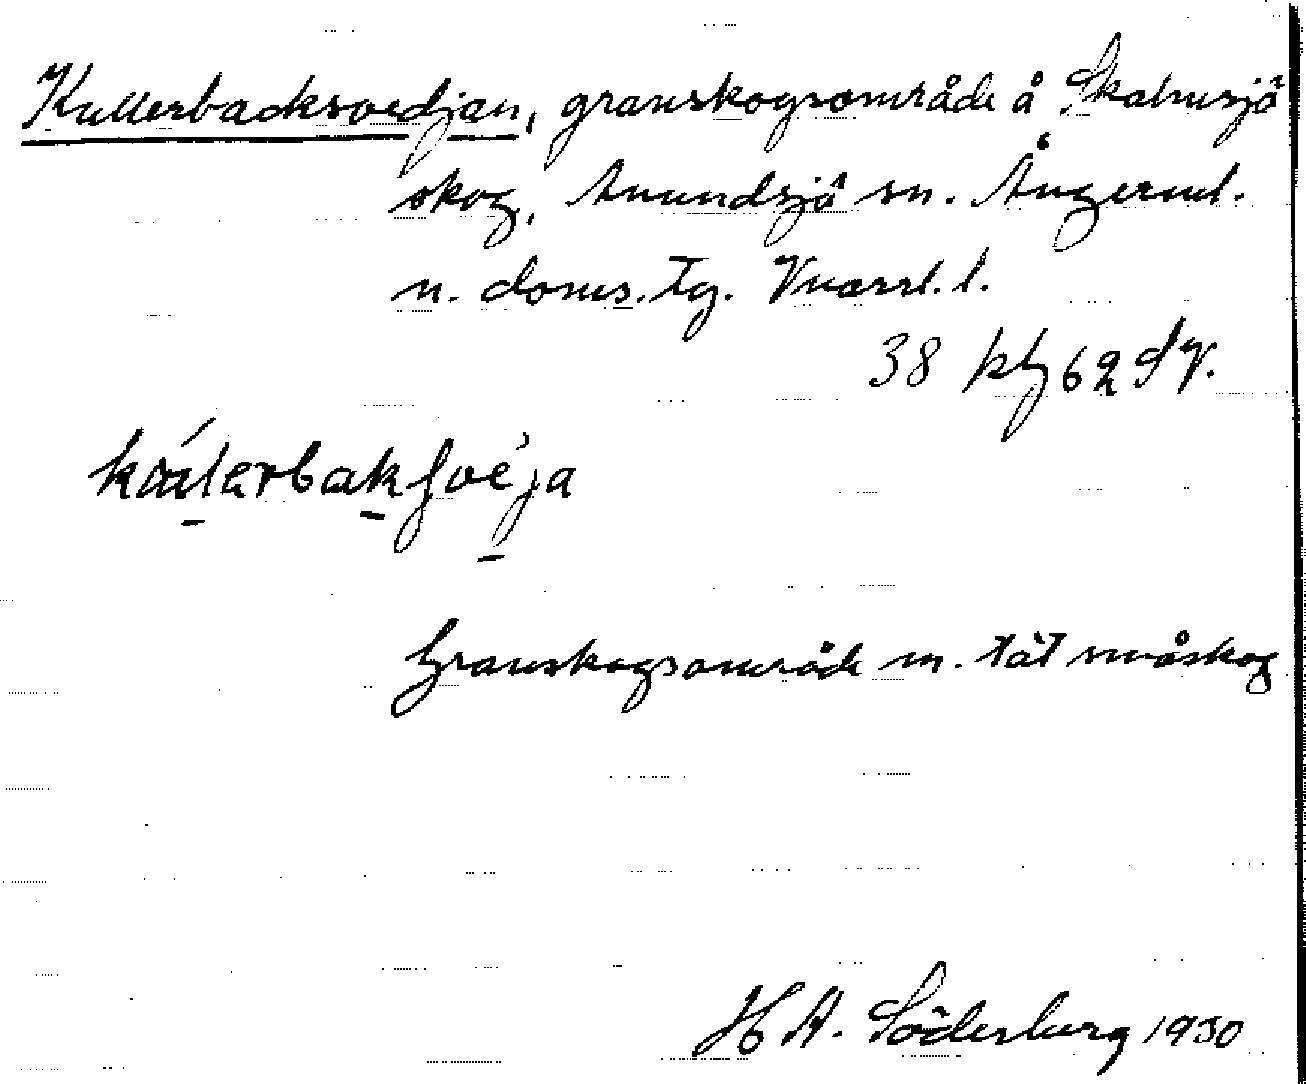 Kullerbacksvedjan, granskogsområde å Skalmsjö
skog, Anundsjö sn. Ångerml.
n. doms. tg. Vnorrl. l.
38 kbg 62 SV.
Granskogsområde m. tät småskog
H A. Söderberg 1930